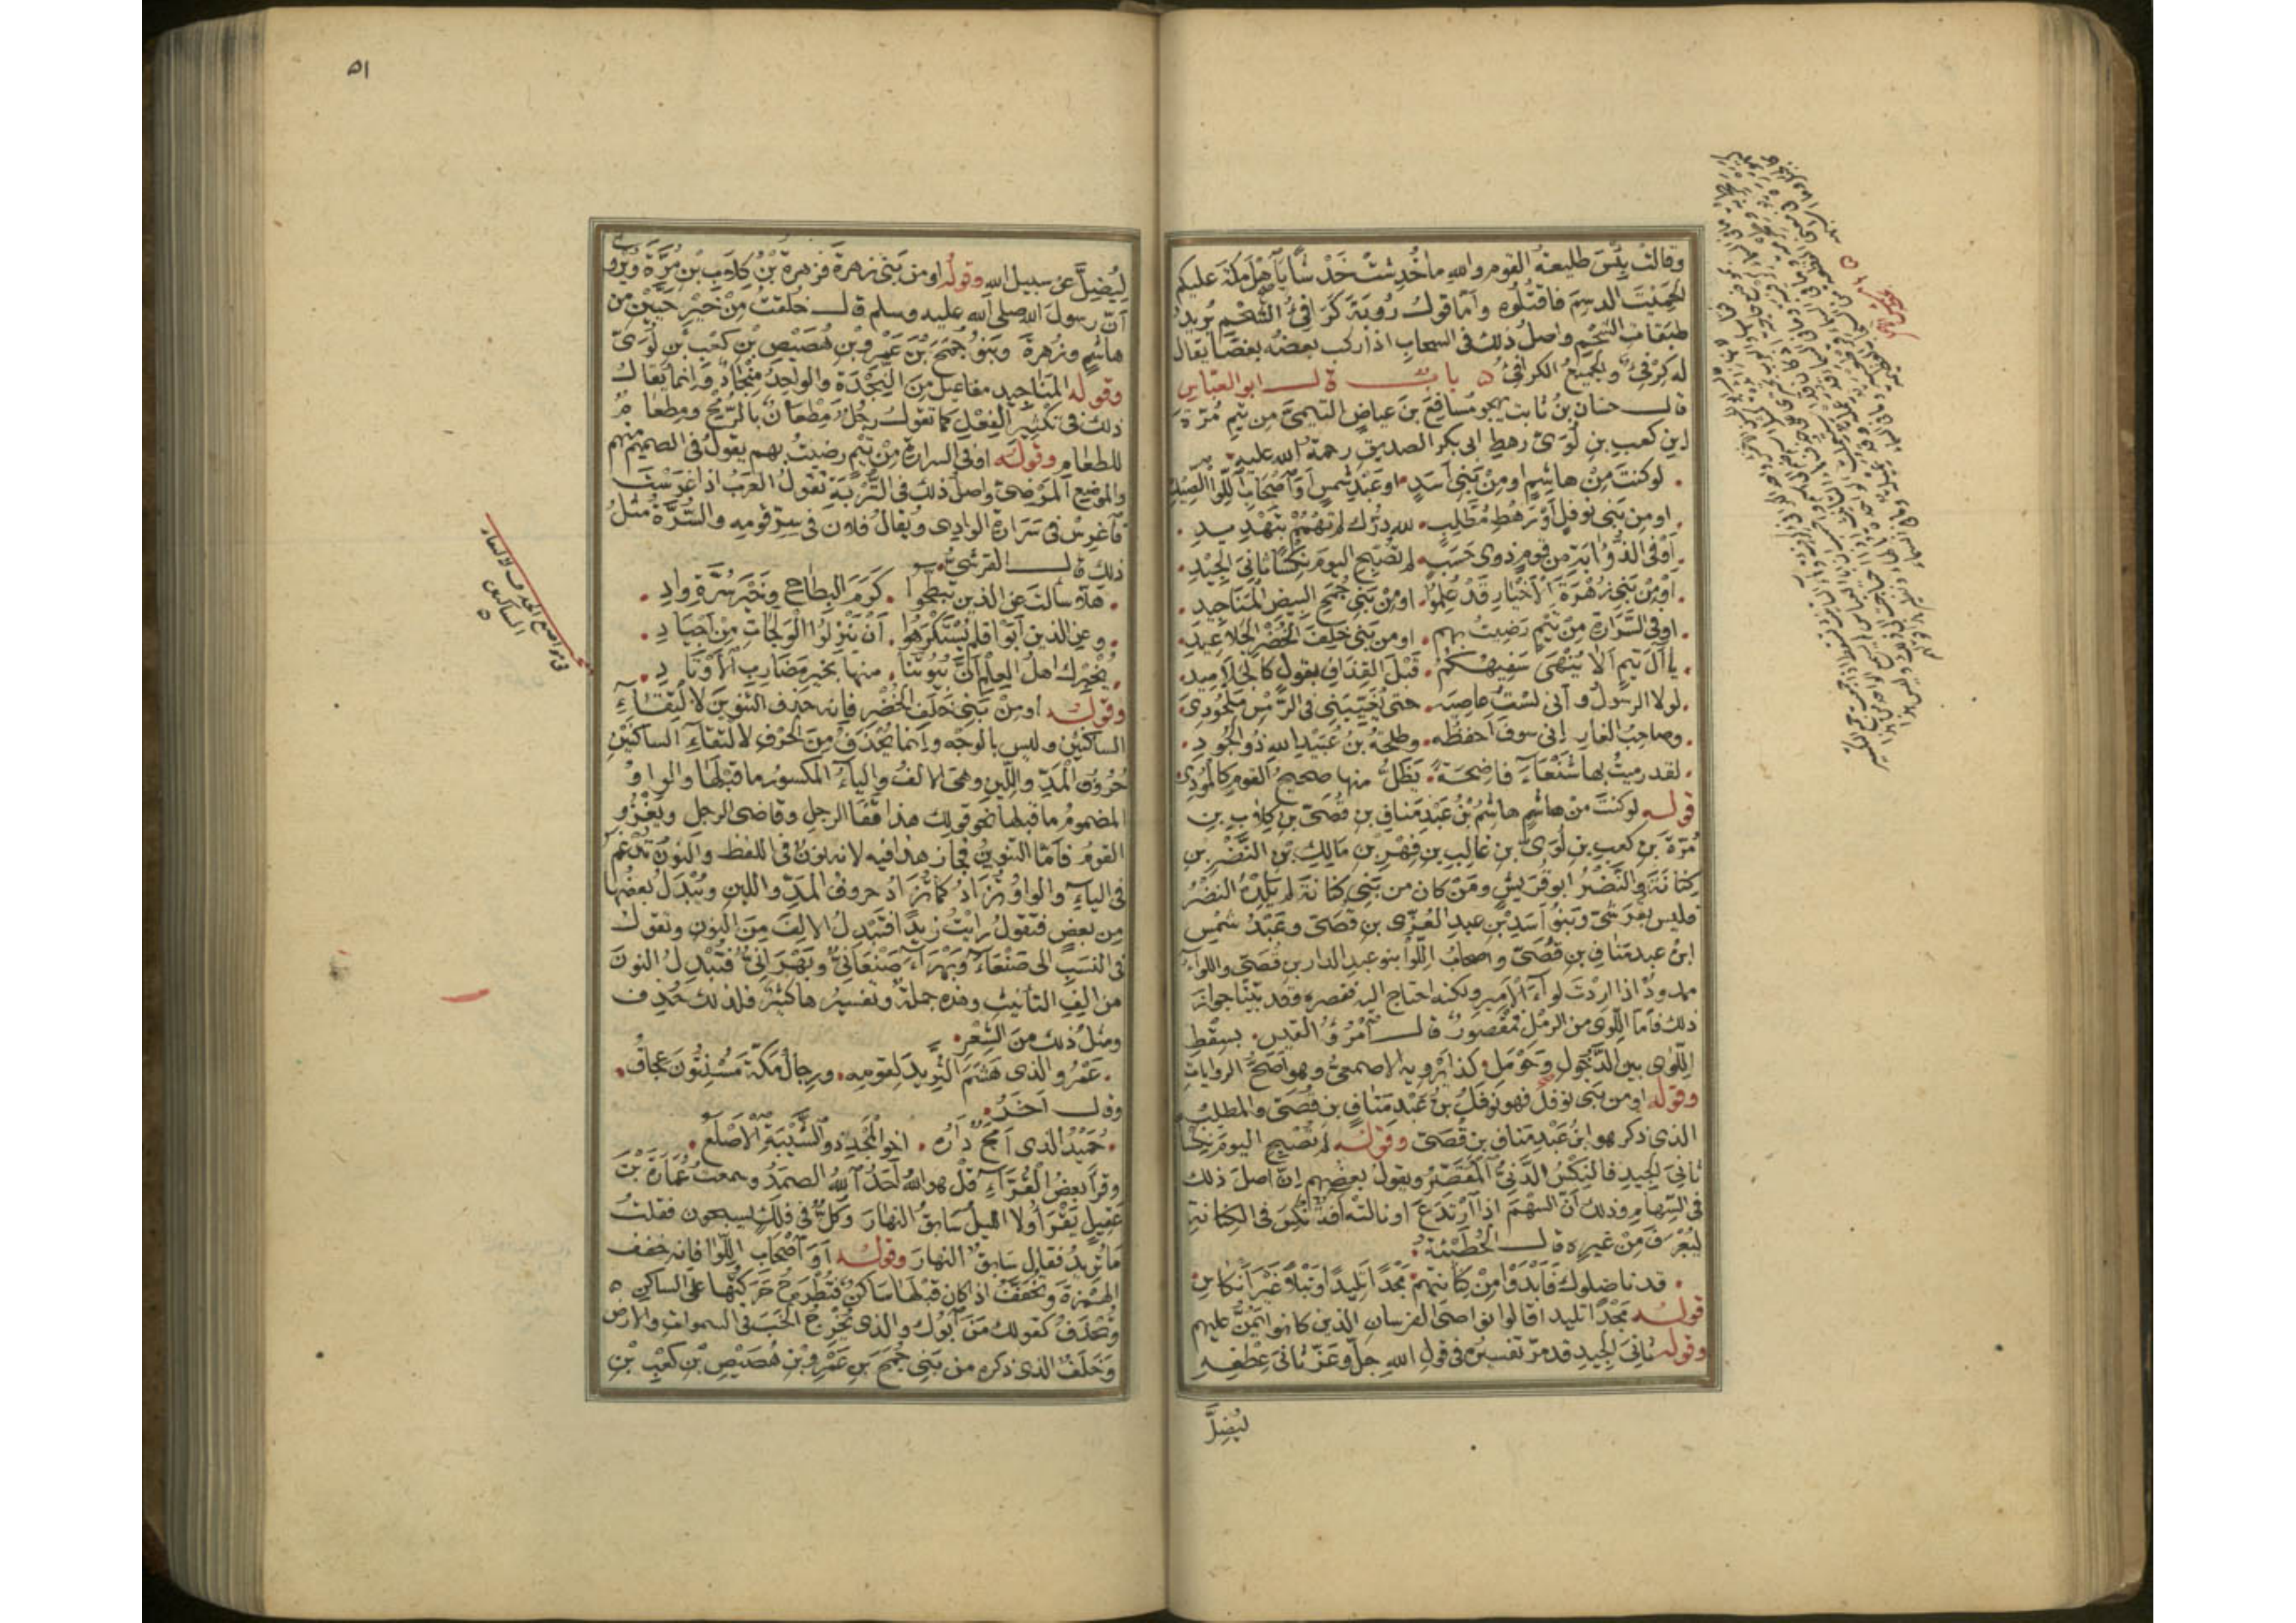 وقالتْ بِئْسَ طليعةُ القومِ والله ماخُدِشَتْ خَدْشًا يا اهْلَ مكّةَ عليكم
الحَمِيتَ الدسِمَ فاقتُلُوه وامّا قولُ رُوبَةَ كَرافِئُ الشحْمِ يُريدُ
طبقاتِ الشحْمِ واصلُ ذلك فى السحابِ اذا ركب بعضُه بعضًا يقال
له كِرْفِئٌ والجميعُ الكرافِئُ ٥ بابٌ قال ابو العبّاس
قال حسّان بنُ ثابت يهجو مُسافِعَ بنَ عِياضٍ التيمىَّ من تيمِ مُرّةَ
ابنِ كعبِ بنِ لُوَىٍّ رهطِ ابى بكرٍ الصديقِ رحمةُ الله عليه
لو كنتَ مِنْ هاشِمٍ اومِنْ بَنِى اَسَدٍ اوعَبْدِ شَمْسٍ اَوَ اصْحَابِ اللِّوَا الصِيدِ
اومِنْ بَنِى نَوفَلٍ اَوْ رَهْطِ مُطَّلِبٍ لله دَرُّكَ لم تَهْمُمْ بتَهْدِيدِ
اَوْ فى الذُؤَابَةِ مِن قومٍ ذوى حَسَبٍ لم تُصْبِحِ اليومَ نِكْسًا ثانِىَ الجِيْدِ
اَوْ مِنْ بَنِى زُهْرَةَ الْاَخْيارِ قَدْ عُلِمُوا اومِنْ بَنِى جُمَحِ البِيضِ المَنَاجِيدِ
اوفى السَّرَارةِ مِنْ تَيْمٍ رَضِيتُ بهم اومن بَنِى خَلَفَ الخُضْرِ الجَلَاعِيدِ
يا آلَ تيمٍ اَلا يُنْهَى سَفِيهُكُمُ قَبْلَ القِذافِ بقولٍ كالجَلَامِيدِ
لولا الرسُولُ وانى لسْتُ عاصِيَه حتى يُغَيِّبَنِى فى الرَّمْسِ مَلْحُودِى
وصاحِبُ الغارِ اِنى سوفَ احفظُه وطلحَةُ بنُ عُبَيْدِ اللهِ ذُو الجُودِ
لقد رميتُ بها شَنْعَاءَ فاضِحَةً يَظَلُّ منها صحيحُ القومِ كالمُودِى
قوله لو كنتَ مِنْ هاشمٍ هاشِمُ بْنُ عَبْدِ مَنافِ بن قُصَىِّ بنِ كِلَابِ بنِ
مُرّةَ بنِ كعبِ بنِ لُوَىِّ بنِ غالِبِ بنِ فِهْرِ بنِ مَالِكِ بنِ النَّضْرِ بنِ
كِنَانَةَ والنَّضْرُ ابو قُرَيشٍ ومَنْ كان من بَنِى كنانةَ لم يَلِدْهُ النضْرُ
فليس بقُرَشىٍّ وبَنُو اَسَدِ بْنِ عبدِ العُزّى بنِ قُصَىٍّ وعَبْدُ شمْسِ
ابنُ عبدِ مَنافِ بن قُصَىٍّ واصحابُ اللِّوَا بنو عبدِ الدارِ بنِ قُصَىٍّ واللواءُ
ممدودٌ اذا اردْتَ لواءَ الامِيرِ ولكنه احتاج اليه فقصره وقد بيّنّا جوازَ
ذلك فامّا اللِّوَى من الرمْلِ فمقصورٌ قال امْرُؤُ القيسِ بسِقْطِ
اللِّوَى بين الدَّخُولِ وحَوْمَلِ كذا يَرْويه الاصمعىُّ وهو اَصَحُّ الرواياتِ
وقوله اومن بَنِى نَوفلٍ فهو نَوفَلُ بنُ عَبْدِ مَنافِ بنِ قُصَىٍّ والمطلِبُ
الذى ذكر هو ابنُ عَبْدِ مَنافِ بنِ قُصَىٍّ وقوله لم تُصْبِحِ اليومَ نِكْسًا
ثانِىَ الجيدِ فالنِكْسُ الدَّنِىُّ المُقَصِّرُ ويقولُ بعضُهم اِنّ اصلَ ذلك
فى السِهَامِ وذلك اَنَّ السهْمَ اِذا ارْتَدَعَ او نالتْه آفَةٌ نُكِسَ فى الكِنانةِ
لِيُعْرَفَ مِنْ غيرِه قال الحُطَيْئَةُ
قد ناضلوك فَاَبْدَوْا مِنْ كِنَانتِهم مَجْدًا تليدًا وَنَبْلًا غَيْرَ اَنْكاسِ
قوله مَجْدًا تليدا قالوا نواصى الفرسانِ الذين كانوا يَمُنُّ عليهم
وقوله ثانِىَ الجيدِ قد مرّ تفسيرُه فى قولِ اللهِ جلّ وعَزّ ثانِىَ عِطْفِهِ
ليُضِلَّ
٥١
لِيُضِلَّ عن سبيل الله وقولُه اومن بَنِى زهرةَ فزهرةُ بنُ كِلَابِ بْنِ مُرَّةَ ويُروى
اَنّ رسولَ الله صلى الله عليه وسلم قال خُلِقتُ مِنْ خَيْرِ حَيَّيْنِ من
هاشِمٍ وزُهرةَ وبَنُو جُمَحَ بْنِ عَمْرِو بْنِ هُصَيْصِ بْنِ كَعْبِ بْنِ لُوَىّ
وقوله المَنَاجيد مفاعيلُ مِنَ النَجْدَةِ والواحِدُ مِنْجَادٌ وانما يُقَالُ
ذلك فى تكْثِيرِ الفِعْلِ كما تقول رجُلٌ مِطْعَانٌ بالرُّمْحِ ومِطْعَامٌ
للطعَامِ وقوله اوفى السرارةِ مِنْ تَيْمٍ رضيتُ بهم يقولُ فى الصميمِ منهم
والموضِعِ المَرْضىِّ واصلُ ذلك فى التُّرْبَةِ تقولُ العَرَبُ اِذا غَرَسْتَ
فاغْرِسْ فى سَرَارةِ الوادى ويُقالُ فُلَان فى سِرِّ قَومِه والسُّرَّةُ مثلُ
ذلك قال القرشىُّ
هلّا سألتَ عنِ الذينَ تَبَطَّحُوا كَرَمَ البِطَاحِ وخَيْرَ سُرَّةِ وادِ
وعنِ الذين اَبَوْا فلم يُسْتَكْرَهُوا اَنْ يَنْزِلُوا الوَلَجاتِ مِنْ اَجْيَادِ
يُخْبِرْك اهلُ العِلْمِ اَنَّ بُيُوتَنَا منها بخيرِ مَضَارِبِ الْاَوْتَادِ
وقوله اومِنْ بَنِى خَلَفَ الخُضْرِ فاِنه حذف التنوِينَ لالْتِقَاءِ
الساكنَيْنِ وليس بالوجْهِ وانما يُحْذَفُ مِنَ الحَرْفِ لالتقاءِ الساكنَيْنِ
حُرُوفُ المَدِّ واللِّينِ وهى الالفُ والياءُ المكسورُ ما قبْلَها والواوُ
المضمومُ ما قبلها نحو قولِك هذا قَفَا الرجلِ وقاضى الرجلِ ويغْزُو
القومُ فامّا التنوينُ فجاز هذا فيه لانه نونٌ فى اللفظِ والنونُ تُدْغَمُ
فى الياءِ والواوِ وتُزَادُ كما تُزَادُ حروفُ المَدِّ واللينِ ويُبْدَلُ بعضُها
مِن بعضٍ فتقولُ رايْتُ زيدًا فتُبْدِلُ الالِفَ مِنَ النونِ وتقولُ
فى النسَبِ الى صَنْعَاءَ وبَهْرَاءَ صَنْعَانِىٌّ وبَهْرَانِىٌّ فتُبْدِلُ النونَ
من الِفِ التأنيثِ وهذه جملةٌ وتفسيرُها كثيرٌ فلذلك حُذِفَ
ومثلُ ذلك مِنَ الشِّعْرِ
عَمْرُو الذى هَشَمَ الثَّرِيدَ لِقَومِه ورِجالُ مَكّةَ مُسْنِتُونَ عِجَافُ
وقال آخَرُ
حُمَيْدُ الذى اَمَجٌ دَارُه اخو الخَمْرِ ذو الشَّيْبَةِ الاصْلَعُ
وقرأ بعضُ القُرّاءِ قُلْ هو اللهُ اَحَدُ اللهُ الصمَدُ وسمعتُ عُمَارَةَ بْنَ
عَقِيلٍ يَقْرَأُ ولا الليلُ سَابِقُ النهارَ وكُلٌّ فى فَلَكٍ يسبحون فقلتُ
ما تُريدُ فقال سَابِقٌ النهارَ وقوله اَوَ اصْحَابِ اللِّوَا فاِنه خفّف
الهمْزةَ وتُخَفَّفُ اذا كان قبْلَها سَاكنٌ فتُطْرَحُ حَرَكَتُها على الساكنِ
وتُحْذَفُ كقولك مَنَ ابُوك والذى يُخْرِجُ الخَبَ فى السمواتِ والارض
وخَلَفُ الذى ذكره من بَنِى جُمَحَ بْنِ عَمْرِو بْنِ هُصَيْصِ بْنِ كَعْبِ بْنِ
فى مواضع الحذف لالتقاء
الساكنين